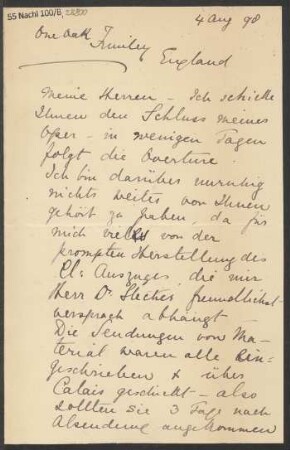 55 Nachl 100/B,
4 Aug 98
One Oak
Frimley
England
Meine Herren – Ich schicke
Ihnen den Schluss meines
Oper – in wenigen Tagen
folgt die Overture.
Ich bin darüber unruhig
nichts weites von Ihnen
gehört zu haben, da für
mich viel von der
prompten Herstellung des
Cl: Auszuges, die mir
Herr Dr Hecker freundlichst
versprach abhängt –
Die Sendungen von Ma-
terial waren alle ein-
geschrieben & über
Calais geschickt – also
sollten sie 3 Tage nach
Absendung angekommen